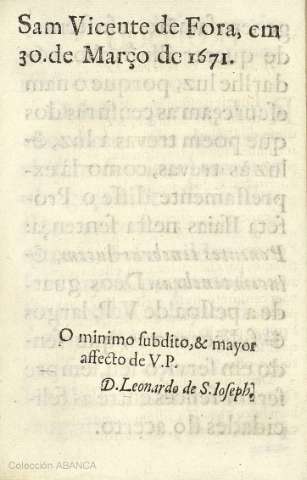 Sam Vicente de Fora, em
30. de Março de 1671.
O minimo subdito, & mayor
affecto de V. P.
D. Leonardo de S. Ioseph.
Colección ABANCA